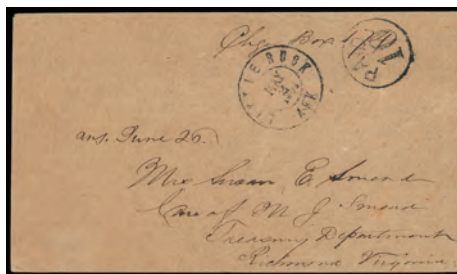 Chg. Box
PAID 10
LITTLE ROCK ARK
ans. June 26.
Mrs Susan E. Smead
Care of M. J. Smead
Treasury Department
Richmond Virginia